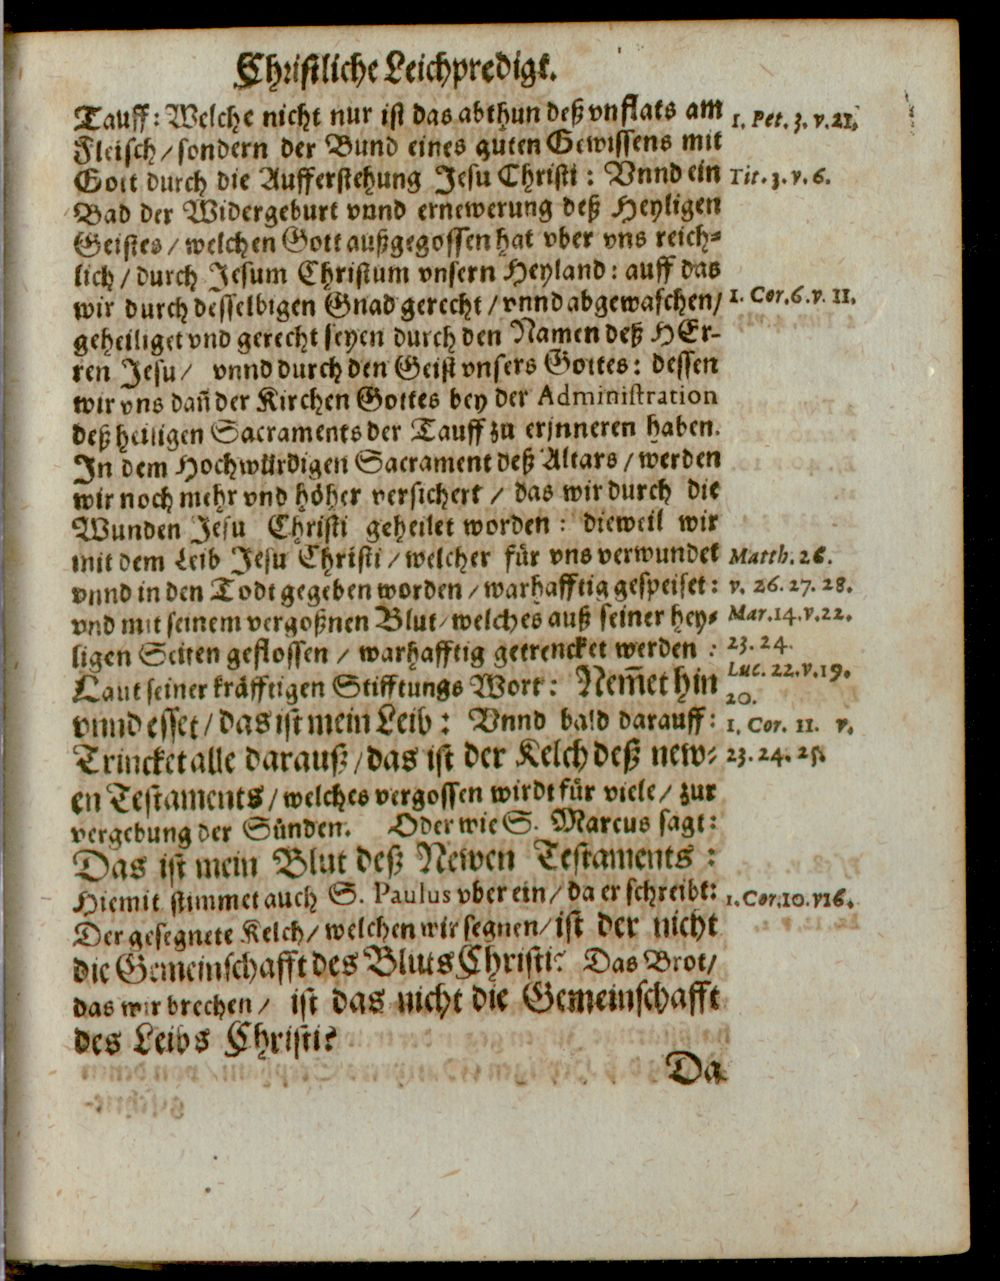 Christliche Leichpredigt.
Tauff: Welche nicht nur ist das abthun deß vnflats am
1. Pet. 3. v. 21.
Fleisch / sondern der Bund eines guten Gewissens mit
Gott durch die Aufferstehung Jesu Christi : Vnnd ein
Tit. 3. v. 6.
Bad der Widergeburt vnnd ernewerung deß Heyligen
Geistes / welchen Gott außgegossen hat vber vns reich-
lich / durch Jesum Christum vnsern Heyland : auff das
wir durch desselbigen Gnad gerecht / vnnd abgewaschen /
1. Cor. 6. v. 11.
geheiliget vnd gerecht seyen durch den Namen deß HEr-
ren Jesu / vnnd durch den Geist vnsers Gottes: dessen
wir vns dañ der Kirchen Gottes bey der Administration
deß heiligen Sacraments der Tauff zu erjnneren haben.
In dem Hochwürdigen Sacrament deß Altars / werden
wir noch mehr vnd höher versichert / das wir durch die
Wunden Jesu Christi geheilet worden : dieweil wir
mit dem Leib Jesu Christi / welcher für vns verwundet
Matth. 26.
vnnd in den Todt gegeben worden / warhafftig gespeiset :
v. 26. 27. 28.
vnd mit seinem vergoßnen Blut / welches auß seiner hey-
Mar. 14. v. 22.
ligen Seiten geflossen / warhafftig getrencket werden :
23. 24.
Laut seiner kräfftigen Stifftungs Wort : Nem̃et hin
Luc. 22. v. 19.
20.
vnnd esset / das ist mein Leib : Vnnd bald darauff :
1. Cor. 11. v.
Trincket alle darauß / das ist der Kelch deß new-
23. 24. 25.
en Testaments / welches vergossen wirdt für viele / zur
vergebung der Sünden. Oder wie S. Marcus sagt :
Das ist mein Blut deß Newen Testaments :
Hiemit stimmet auch S. Paulus vber ein / da er schreibt :
1. Cor. 10. v16.
Der gesegnete Kelch / welchen wir segnen / ist der nicht
die Gemeinschafft des Bluts Christi? Das Brot /
das wir brechen / ist das nicht die Gemeinschafft
des Leibs Christi?
Da